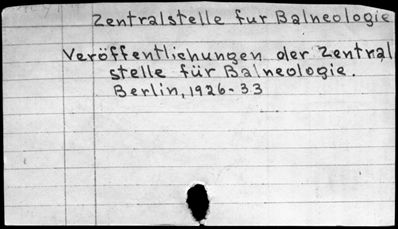 Zentralstelle fur Balneologie
Veröffentlichungen der Zentral
stelle für Balneologie.
Berlin, 1926-33